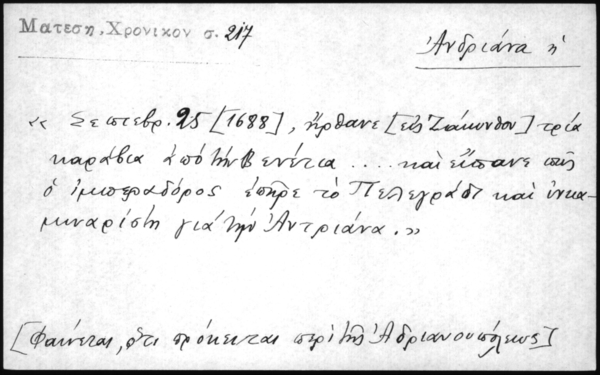 Ματεση, Χρονικον σ. 217
Ἀνδριάνα ἡ
« Σεπτεβρ. 25 [1688], ἤρθανε [εἰς Ζάκυνθον] τρία
καράβια ἀπὸ τὴν Βενέτια .... καὶ εἴπανε πῶς
ὁ ἰμπεραδόρος ἐπῆρε τὸ Πελεγράδι καὶ ἰνκα-
μιναρίστη γιὰ τὴν Ἀντριάνα.»
[Φαίνεται, ὅτι πρόκειται περὶ τῆς Ἀδριανουπόλεως]